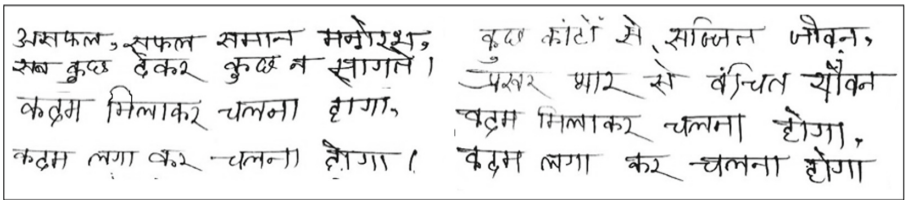 असफल, सफल समान मनोरथ,
सब कुछ देकर कुछ न मांगते।
कदम मिलाकर चलना होगा,
कदम लगा कर चलना होगा।
कुछ कांटों से, सज्जित जीवन,
प्रखर प्यार से वंचित यौवन
कदम मिलाकर चलना होगा,
कदम लगा कर चलना होगा